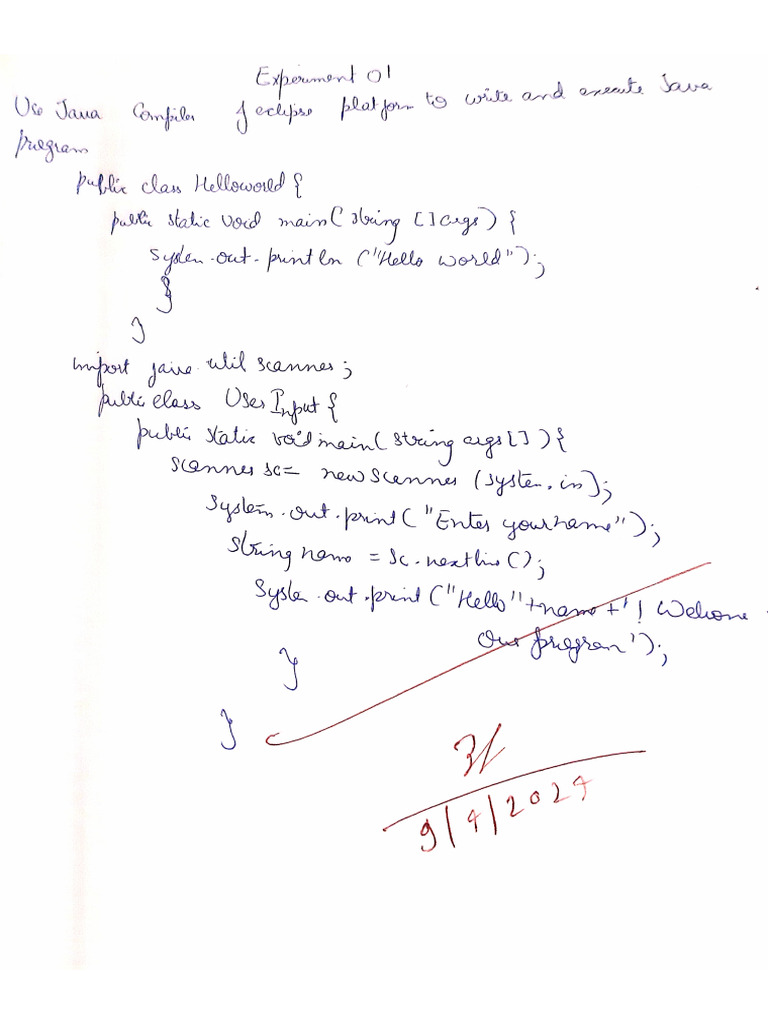 Experiment 01
Use Java Compiler & eclipse platform to write and execute Java
program
public class Helloworld {
public static void main (string [] args) {
system.out.println ("Hello world");
}
}
import java.util scanner;
public class User Input {
public static void main (string args []) {
scanner sc = new scanner (system.in);
system.out.print ("Enter your name");
string name = sc.nextline ();
system.out.print ("Hello" + name + '! Welcome
our program');
}
}
9/4/2024